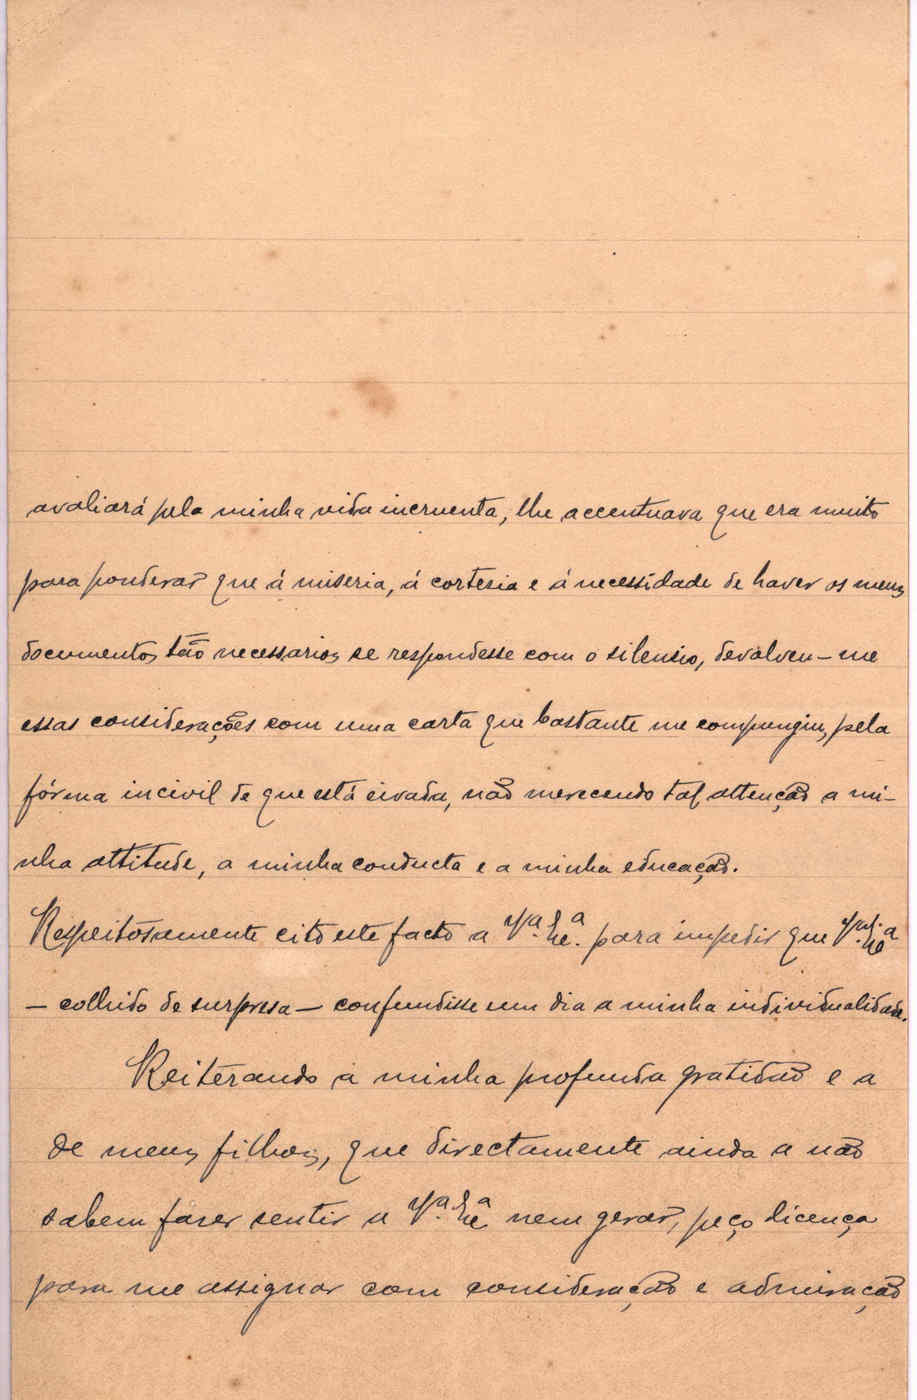 avaliará pela minha vida incruenta, lhe accentuava que era muito
para ponderar que á miseria, á cortesia e á necessidade de haver os meus
documentos tão necessarios se respondesse com o silensio, devolveu-me
essas considerações com uma carta que bastante me compungiu, pela
fórma incivil de que está eivada, não merecendo tal attenção a mi-
nha attitude, a minha conducta e a minha educação.
Respeitosamente cito este facto a Vª. Exª. para impedir que Vª. Exª
— colhido de surpresa — confundisse um dia a minha individualidade.
Reiterando a minha profunda gratidão e a
de meus filhos, que directamente ainda a não
sabem fazer sentir a Vª. Exª nem gerar, peço licença
para me assignar com consideração e admiração